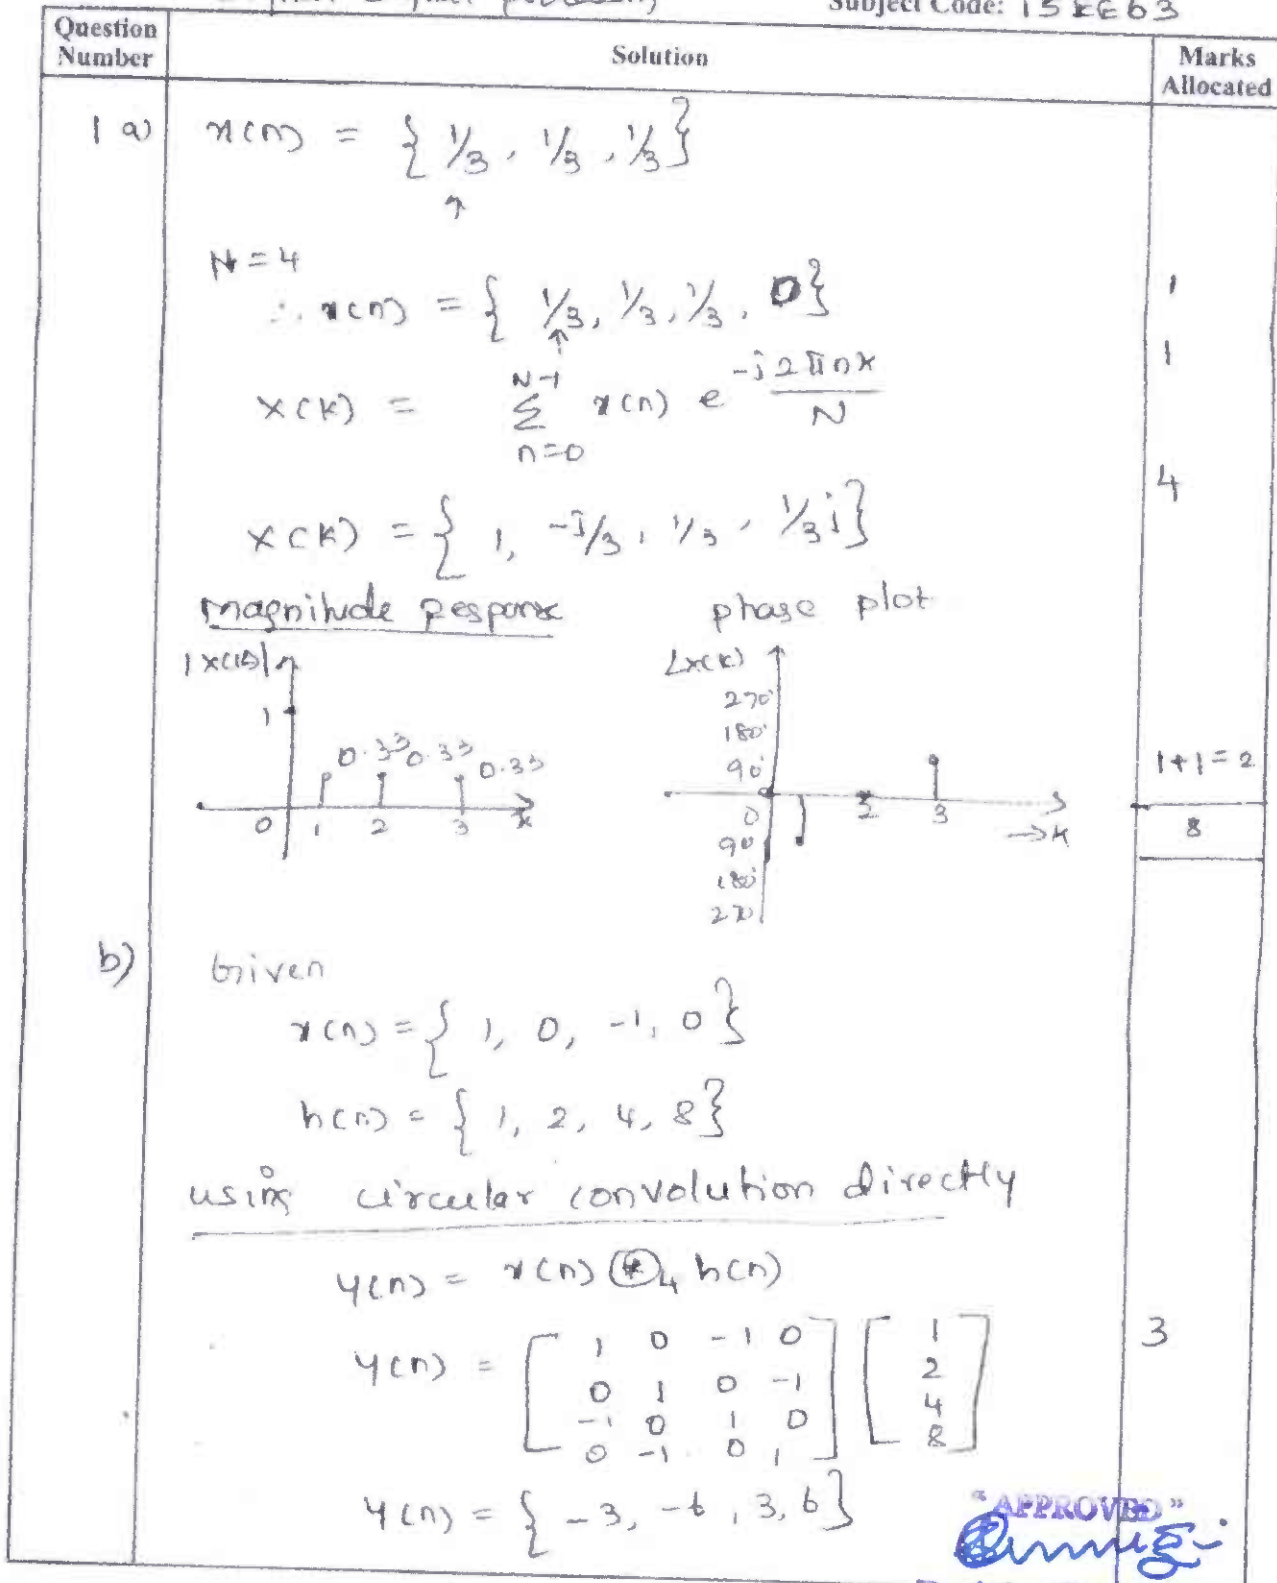 Subject Code: 15EE63
Question Number
Solution
Marks Allocated
1 a)
x(n) = { 1/3, 1/3, 1/3 }
↑
N = 4
∴ x(n) = { 1/3, 1/3, 1/3, 0 }
1
↑
X(K) = N-1 Σ n=0 x(n) e -j2πnK/N
1
X(K) = { 1, -j/3, 1/3, 1/3 j }
4
Magnitude Response
phase plot
|X(K)|
∠X(K)
270°
180°
1
0.33 0.33 0.33
90°
1+1=2
0 1 2 3 K
0 2 3
→K
8
90°
180°
270
b)
Given
x(n) = { 1, 0, -1, 0 }
h(n) = { 1, 2, 4, 8 }
using circular convolution directly
y(n) = x(n) ⊛4 h(n)
y(n) = [ 1 0 -1 0 ] [ 1 ]
3
0 1 0 -1 2
-1 0 1 0 4
0 -1 0 1 8
y(n) = { -3, -6, 3, 6 }
"APPROVED"